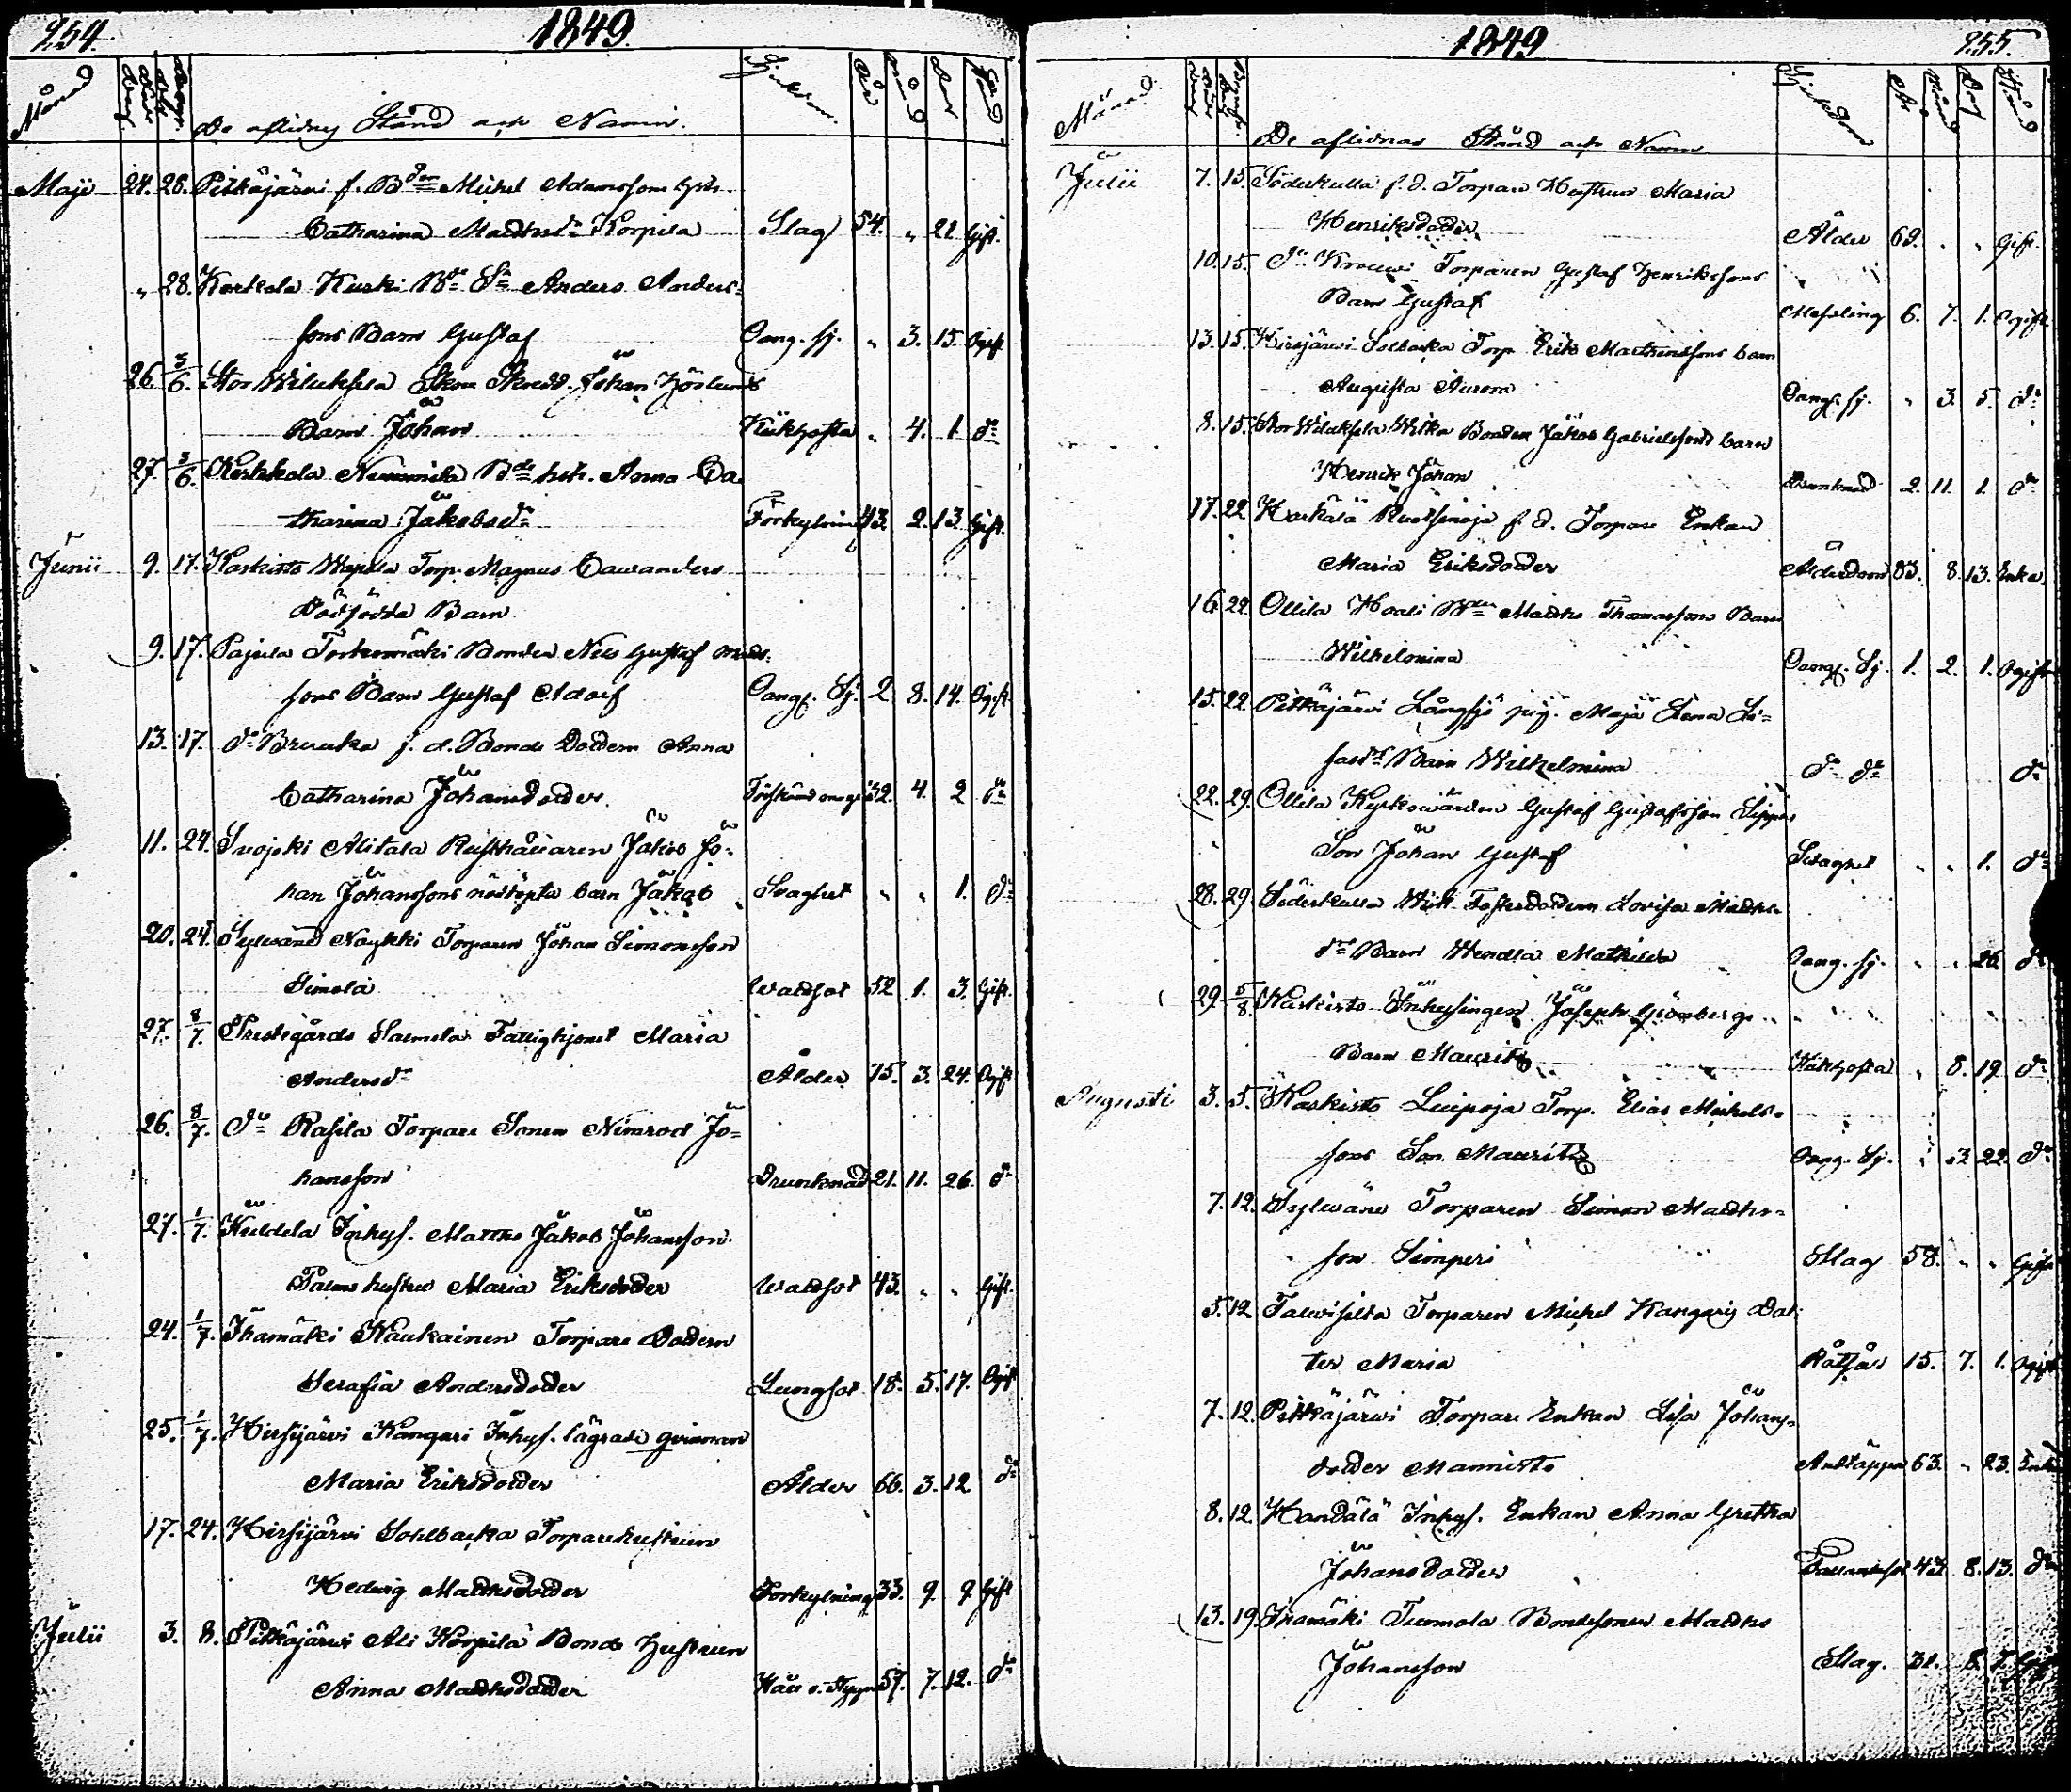 254. 1849.
Månad De aflidnes Stånd och Namn. Sjukdom. År Mån Dag Stånd
Maji 24. 28. Pitkäjärvi f. Bden Michel Adamssons hstr.
Catharina Mattsdr Korpila Slag 54. „ 21 Gift.
„ 28. Karkola Kurki Bde Sn Anders Anders-
sons Barn Gustaf Oang. sj. „ 3. 15. Ogift
26. 3/6. Stor Wiluksela Skom Johan
Barn Johan Kikhosta „ 4. 1 do
27. 3/6. Bde hstr. Anna Ca-
tharina Jakobsdr Förkylning 43. 2. 13. Gift.
Junii 9. 17. Kaskisto Torp. Magnus Cawanders
Dödfödda Barn
9. 17. Pajula Torkonmäki Bonden Nils Gustaf Matts-
sons Barn Gustaf Adolf Oangf. Sj. 2 8. 14. Ogift.
13. 17. do f. d. Bonde Dottern Anna
Catharina Johansdotter. 32. 4. 2 do
11. 24. Suojoki Alitala Rusthållaren Jakob Jo-
han Johanssons nödöpta barn Jakob Svaghet „ „ 1. do
20. 24. Sylvänä Naykki Torparen Johan Simonsson
Simola Wattsot 52 1. 3. Gift.
27. 8/7. Prestegårds Salmela Fattighjonet Maria
Andersdr Ålder 75. 3. 24. Ogift
26. 8/7. do Rasila Torpare Sonen Nimrod Jo-
hansson Drunknad 21. 11. 26. do
27. 1/7. Inhys. Matths Jakob Johansson
hustru Maria Eriksdotter Wattsot 43. „ „ Gift.
24. 1/7. Ihamäki Kaukainen Torpare Dottern
Serafia Andersdotter Lungsot 18. 5. 17. Ogift
25. 1/7. Hirsijärvi Kangari Inhys. lägrade qvinnan
Maria Eriksdotter Ålder 66. 3. 12 do
17. 24. Hirsijärvi Sohlbacka Torparehustrun
Hedvig Matthsdotter Förkylning 33. 9. 9 Gift
Julii 3. 8. Pitkäjärvi Ali Korpila Bonde Hustrun
Anna Matthsdotter 57. 7. 12. do
1849 255.
Månad De aflidnas Stånd och Namn Sjukdom År Månad Dag Stånd
Julii 7. 15. Söderkulla f. d. Torpare Hustrun Maria
Henriksdotter Ålder 69. „ „ Gift.
10. 15. do Torparen Gustaf Henrikssons
Barn Gustaf Messling 6. 7. 1. Ogift
13. 15. Hirsjärvi Solbacka Torp. Eriks Martinssons barn
Augusta Aurora Oangf. sj. „ 3. 5. do
8. 15. Stor Wiluksela Bonden Jakob Gabrielssons barn
Henrik Johan Drunknad 2. 11. 1. do
17. 22. Harkälä f. d. Torpare Enkan
Maria Eriksdotter Ålderdom 83. 8. 13. Enka
16. 22. Ollila Bden Matths Thomassons Barn
Wilhelmina Oangf. Sj. 1. 2. 1. Ogift
15. 22. Pitkäjärvi Långsjö pig. Maja Lena Li-
sasdr Barn Wilhelmina do do do
22. 29. Ollila Kyrkowärden Gustaf Gustafsson Sippus
Son Johan Gustaf Svaghet „ „ 1. do
28. 29. Söderkulla Wik Fosterdottern Lovisa Matths-
drs Barn Wendla Mathilda Oang. sj. „ „ 26. do
29. 5/8. Kaskisto Inhysingen Joseph Grönbergs
Barn Mauritz Kikhosta „ 8. 19. do
Augusti 3. 5. Kaskisto Luipoja Torp. Elias Mickels-
sons Son. Mauritz Oang. Sj. „ 3 22. do
7. 12. Sylvänä Torparen Simon Matths-
son Simperi Slag 58. „ „ Gift
5. 12 Talvisilta Torparen Michel Kangaris Dot-
ter Maria Rötfeb 15. 7. 1. Ogift
7. 12. Pitkäjärvi Torpare Enkan Lisa Johans-
dotter Mannisto Andtäppa 63. „ 23. Enka
8. 12. Handälä Inhys. Enkan Anna Gretha
Johansdotter 43 8. 13. do
13. 19. Ihamäki Tuomola Bondesonen Matths
Johansson Slag. 31. 8.